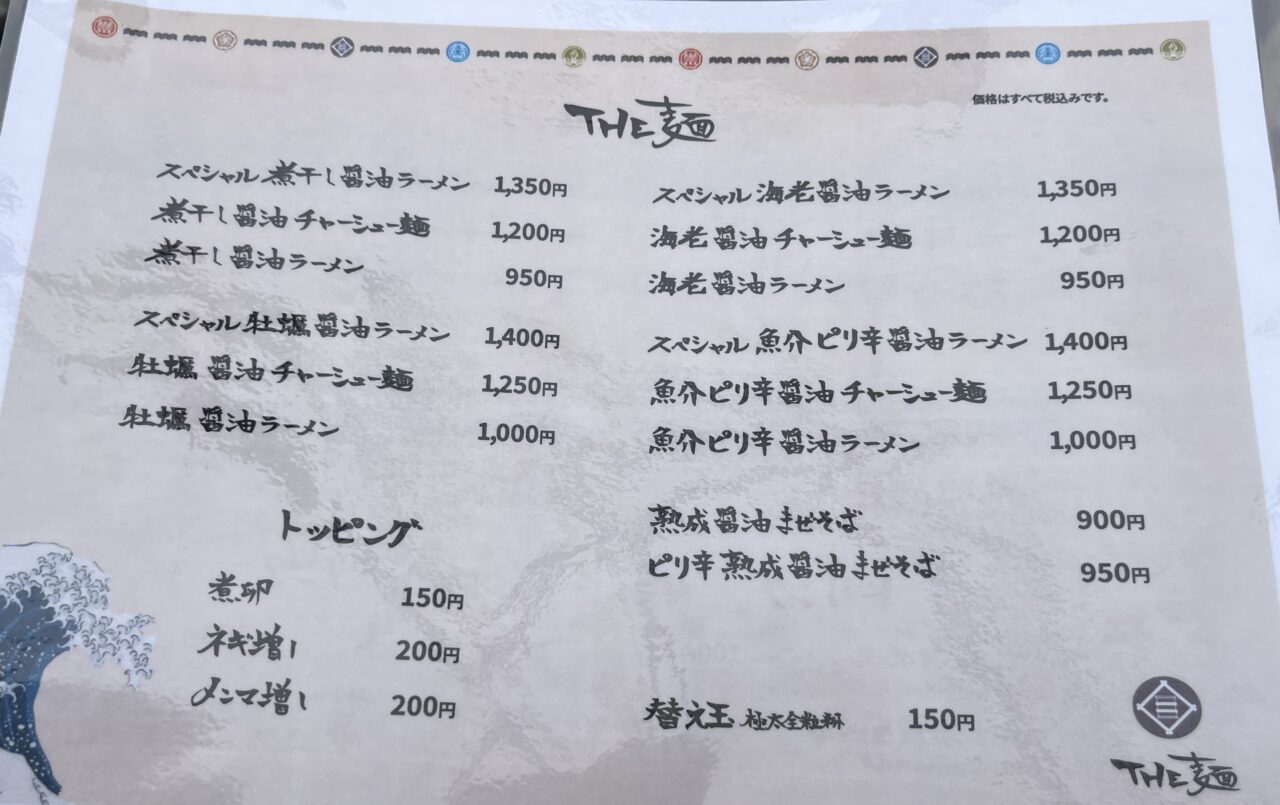 THE麺
価格はすべて税込みです。
スペシャル煮干し醤油ラーメン 1,350円
煮干し醤油チャーシュー麺 1,200円
煮干し醤油ラーメン 950円
スペシャル牡蠣醤油ラーメン 1,400円
牡蠣醤油チャーシュー麺 1,250円
牡蠣醤油ラーメン 1,000円
トッピング
煮卵 150円
ネギ増し 200円
メンマ増し 200円
スペシャル海老醤油ラーメン 1,350円
海老醤油チャーシュー麺 1,200円
海老醤油ラーメン 950円
スペシャル魚介ピリ辛醤油ラーメン 1,400円
魚介ピリ辛醤油チャーシュー麺 1,250円
魚介ピリ辛醤油ラーメン 1,000円
熟成醤油まぜそば 900円
ピリ辛熟成醤油まぜそば 950円
替え玉 極太全粒粉 150円
THE麺